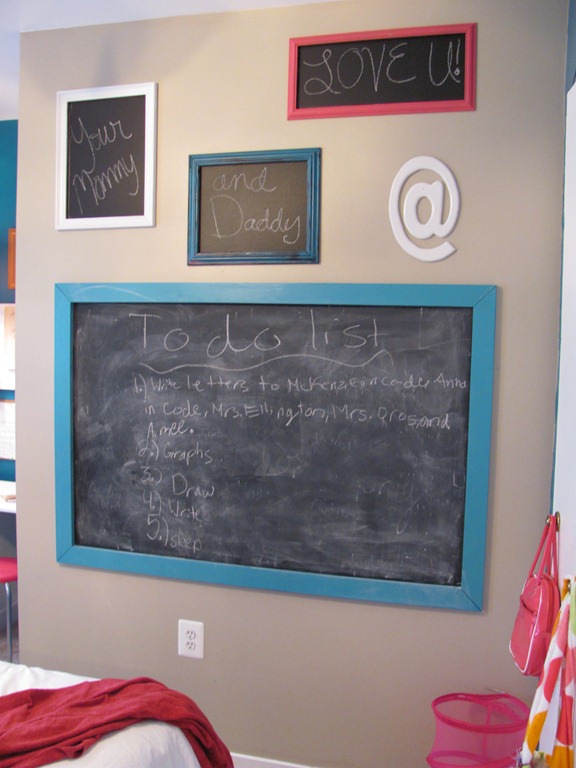 Your
Mommy
and
Daddy
LOVE U!
@
To do list
1.) Write letters to McKenzie in code, Anna
in code, Mrs. Ellington, Mrs. and
2.) Graphs
3.) Draw
4.) Write
5.) sleep